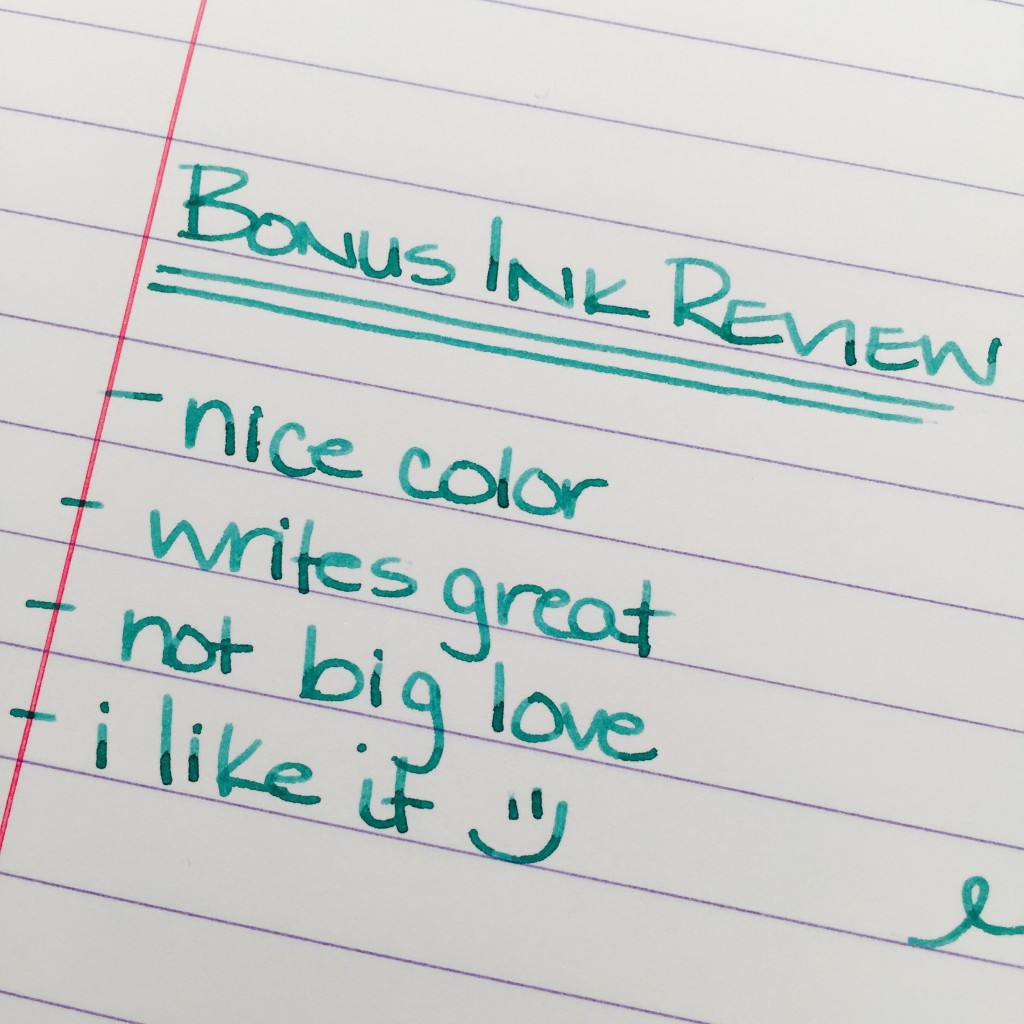 BONUS INK REVIEW
- nice color
- writes great
- not big love
- i like it